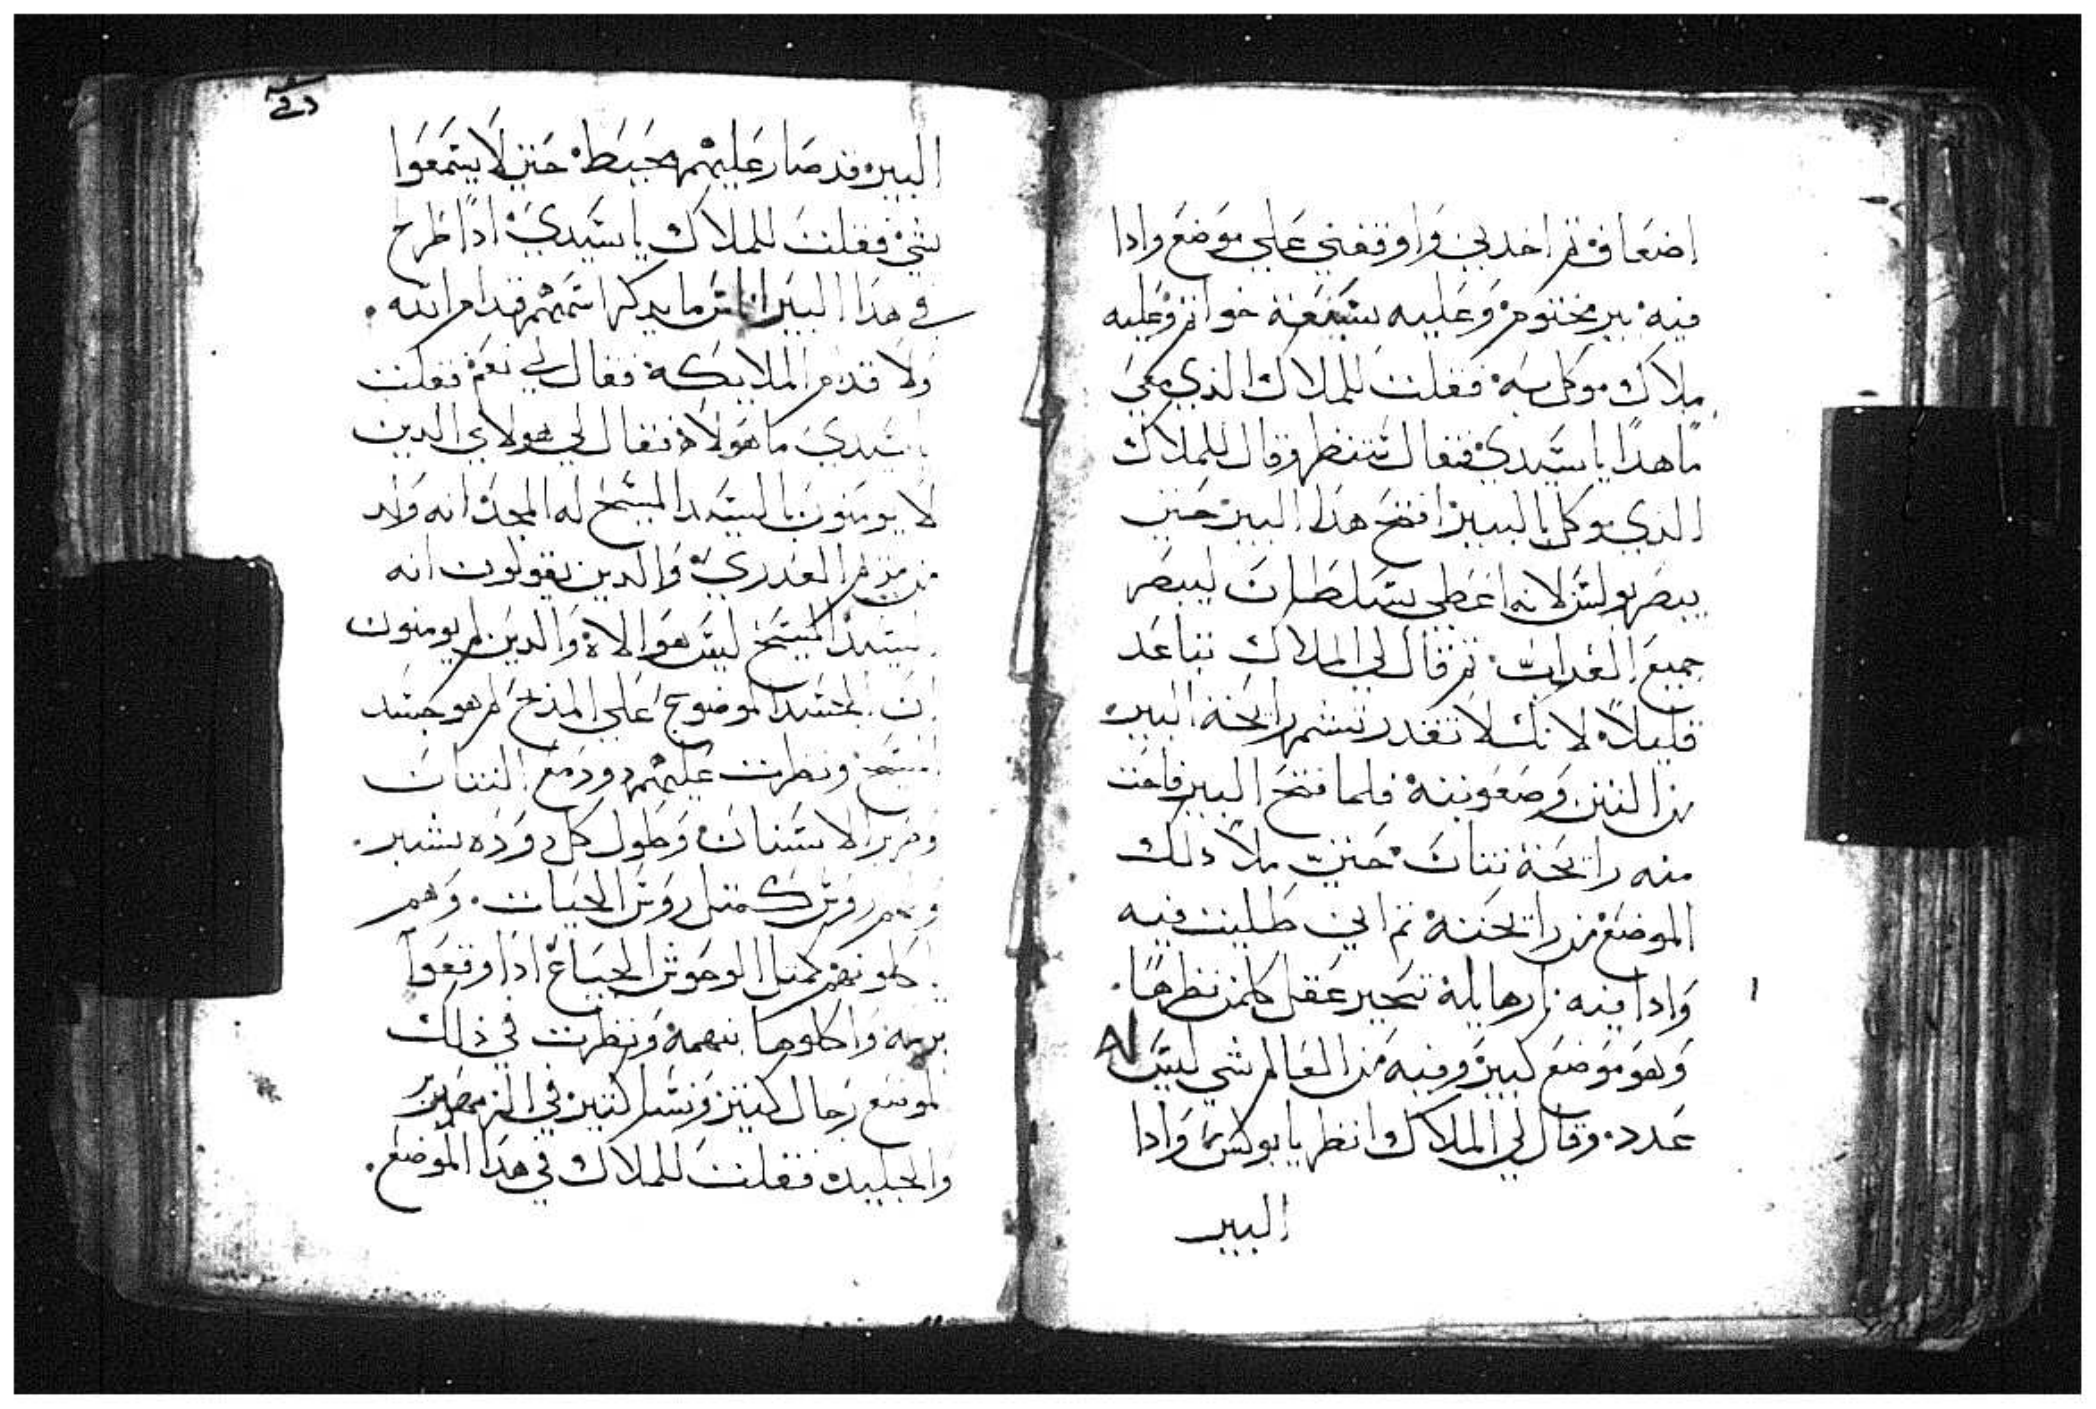 اضعاف ثم اخدني واوقفني علي موضع وادا
فيه بير مختومه وعليه سبعة خواتم وعليه
ملاك موكل به فقلت للملاك الذي معي
ما هدا يا سيدي فقال ستنظر وقال للملاك
الذي موكل بالبير افتح هذا البير حتي
يبصر بولس لانه اعطي سلطان ليبصر
جميع العدابات ثم قال لي الملاك تباعد
قليلاً لانك لا تقدر تشم رايحة البير
من النتن وصعوبته فلما فتح البير فاحت
منه رايحة نتنان حتي ملا دلك
الموضع من رايحته ثم اني طليت فيه
وادا فيه نار هايلة تحير عقل كلمن نظرها
وهو موضع كبير وفيه من العالم شي ليس
عدد وقال لي الملاك انظر يا بولس وادا
البير
البير قد صار عليهم محيط حتي لا يستمعوا
شي فقلت للملاك يا سيدي ادا طرح
في هدا البير اناس ما يدكر اسمهم قدام الله
ولا قدام الملايكة فقال لي نعم فقلت
يا سيدي ما هولاء فقال لي هولاي الدين
لا يومنون بالسيد المسيح له المجد انه ولد
من مريم العدري والدين يقولون انه
السيد المسيح ليس هو الاه والدين لم يومنون
ان الجسد الموضوع علي المدبح لم هو جسد
المسيح ونظرت عليهم دود مع النتنان
وصرير الاسنان وطول كل دوده شبر
ولهم روس كمتل روس الحيات وهم
ياكلونهم كمتل الوحوش الجياع ادا وقعوا
برمة واكلوها بنهمة ونظرت في ذلك
الموضع رجال كتير ونسا كتير في الزمهرير
والجليد فقلت للملاك في هدا الموضع